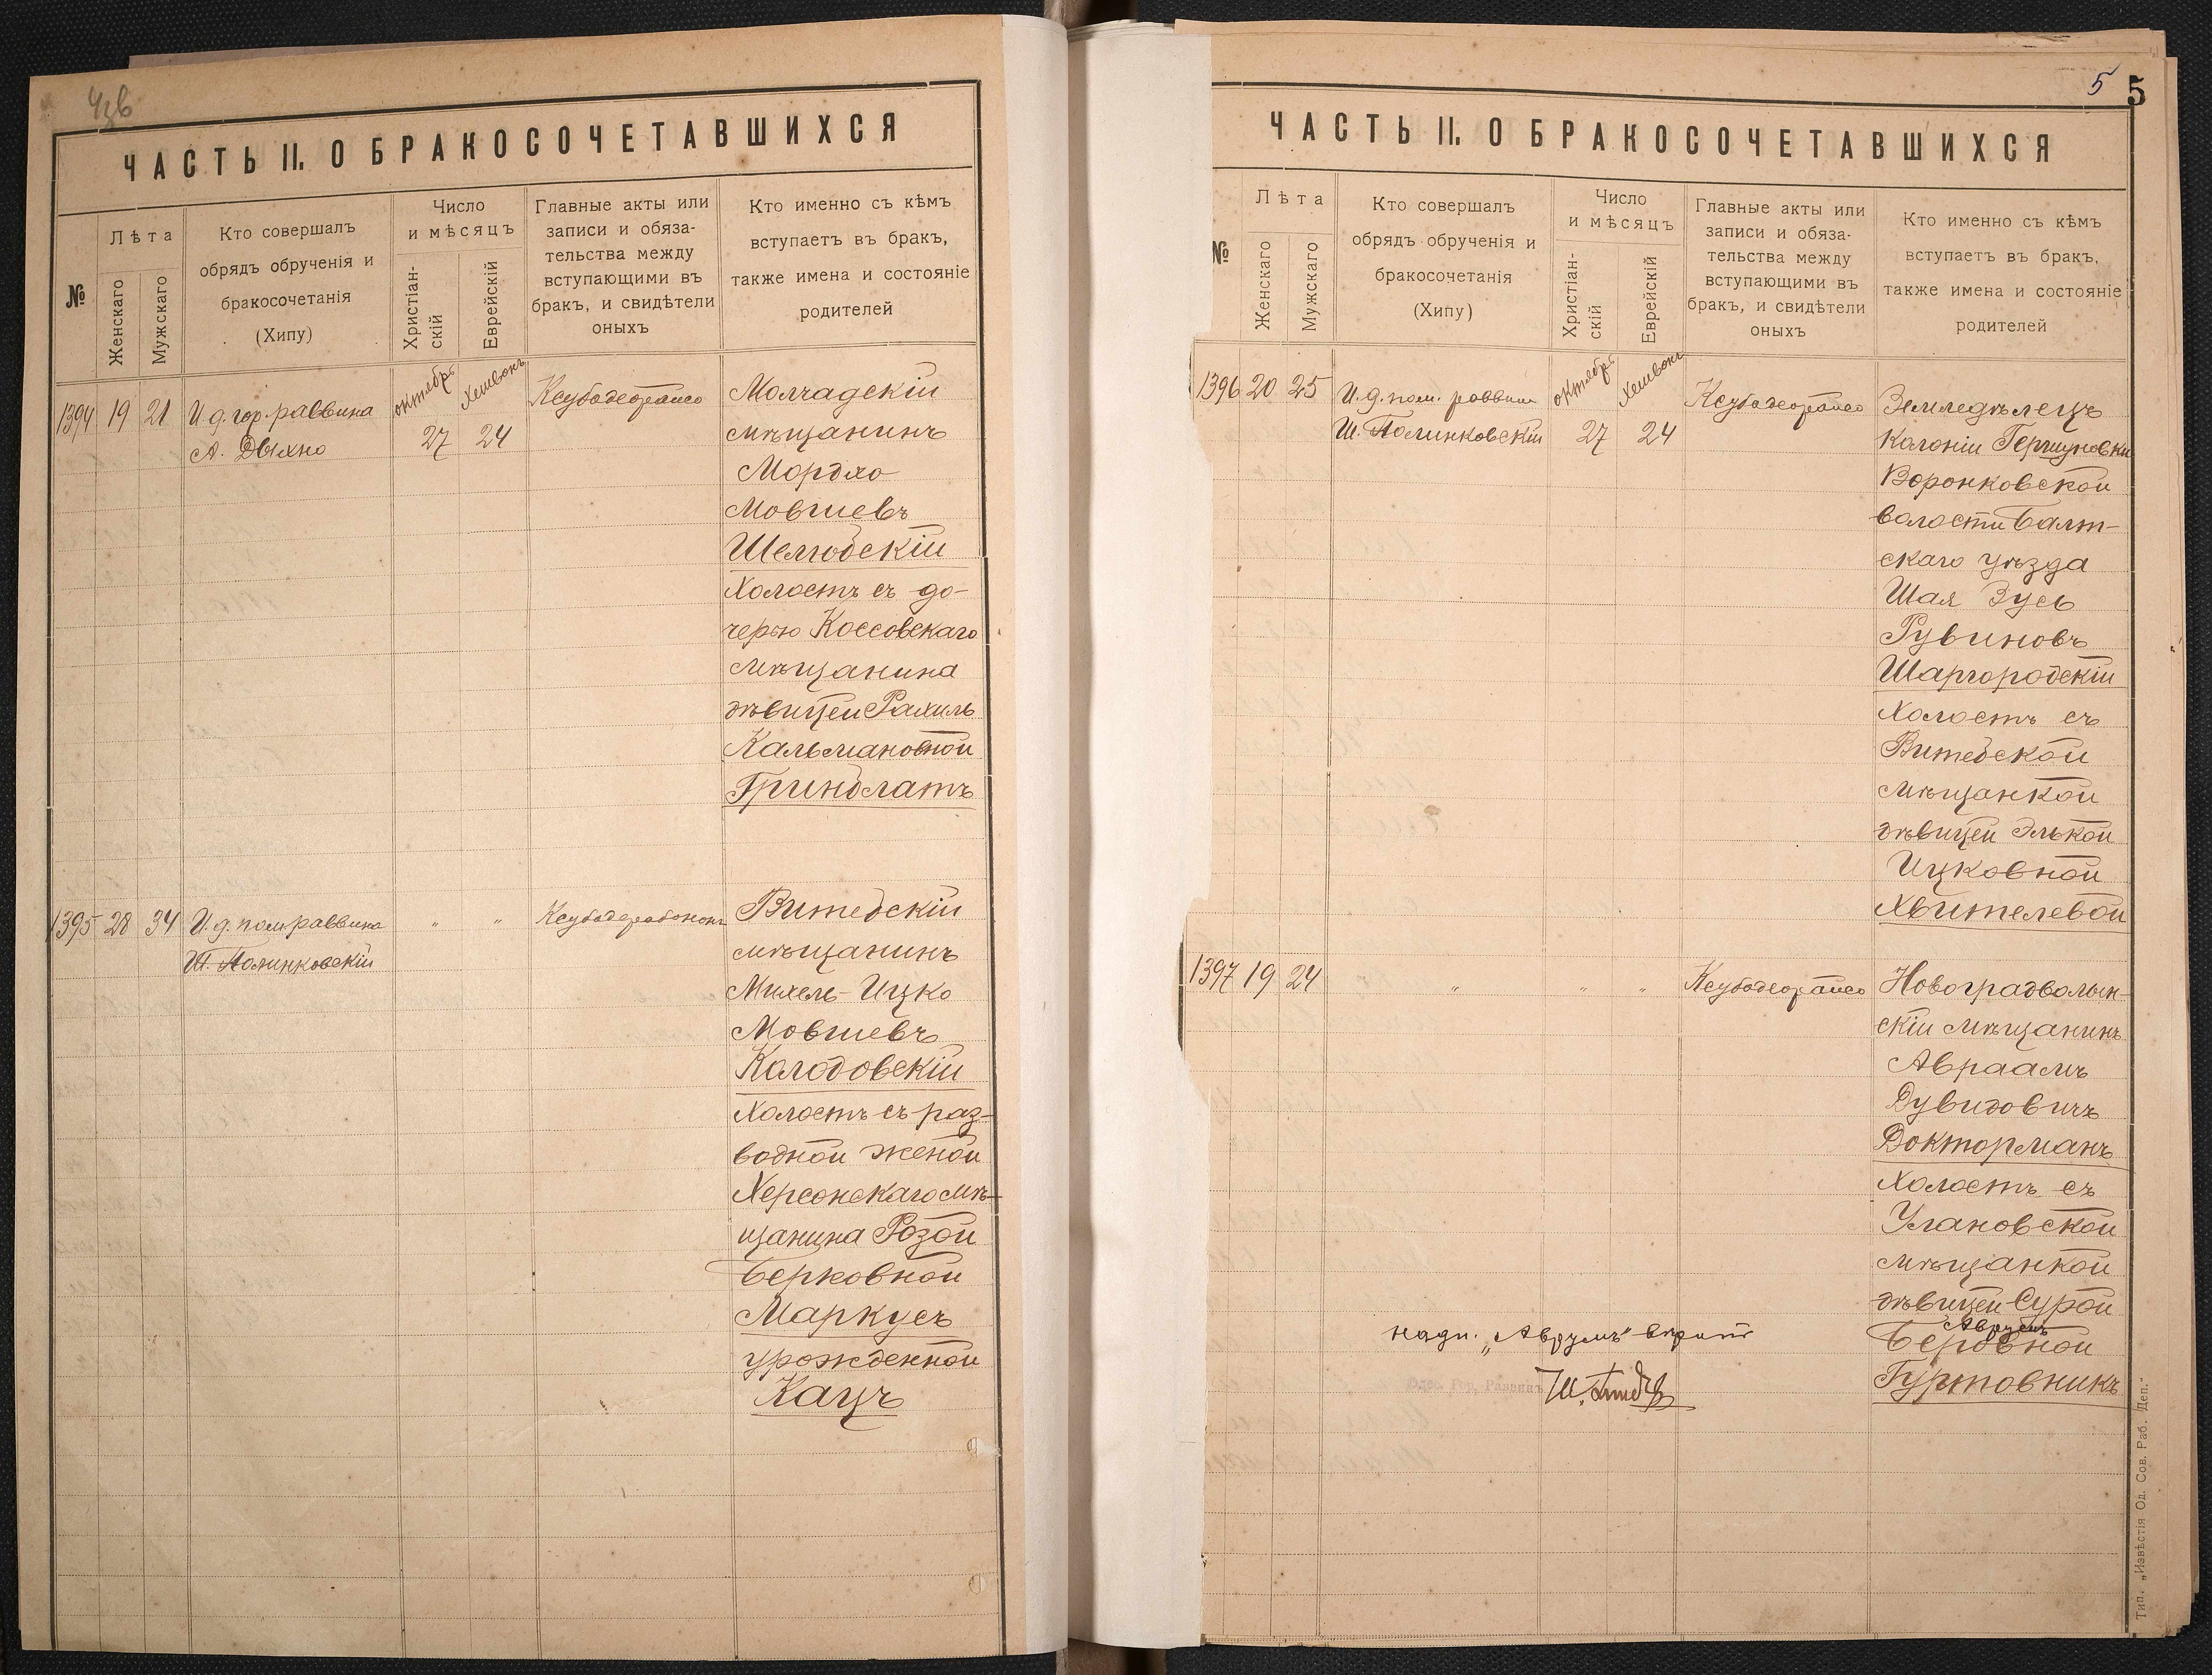 ЧАСТЬ II. О БРАКОСОЧЕТАВШИХСЯ
№
Лѣта
Женскаго
Мужскаго
Кто совершалъ
обрядъ обрученія и
бракосочетанія
(Хипу)
Число
и мѣсяцъ
Христіан-
скій
Еврейскій
Главные акты или
записи и обяза-
тельства между
вступающими въ
бракъ, и свидѣтели
оныхъ
Кто именно съ кѣмъ
вступаетъ въ бракъ,
также имена и состояніе
родителей
1394 19 21
И. д. гор. раввина
А. Дыхно
октябрь
27
Хешвонъ
24
Ксубодеорайсо
Молчадскій
мѣщанинъ
Мордхо
Мовшевъ
Шелюбскій
Холостъ съ до-
черью Коссовскаго
мѣщанина
дѣвицей Рахиль
Кальмановной
Гринблатъ
1395 28 34
И. д. пом. раввина
Ш. Полинковскій
„ „
Ксубодерабононъ
Витебскій
мѣщанинъ
Михель-Ицко
Мовшевъ
Колодовскій
Холостъ съ раз-
водной женой
Херсонскаго мѣ-
щанина Розой
Берковной
Маркусъ
урожденной
Кацъ
5 5
ЧАСТЬ II. О БРАКОСОЧЕТАВШИХСЯ
№
Лѣта
Женскаго
Мужскаго
Кто совершалъ
обрядъ обрученія и
бракосочетанія
(Хипу)
Число
и мѣсяцъ
Христіан-
скій
Еврейскій
Главные акты или
записи и обяза-
тельства между
вступающими въ
бракъ, и свидѣтели
оныхъ
Кто именно съ кѣмъ
вступаетъ въ бракъ,
также имена и состояніе
родителей
1396 20 25
И. д. пом. раввина
Ш. Полинковскій
октябрь
27
Хешвонъ
24
Ксубодеорайсо
Земледѣлецъ
Колоніи Гершуновки
Воронковской
волости Балт-
скаго уѣзда
Шая Зусь
Рувиновъ
Шаргородскій
Холостъ съ
Витебской
мѣщанкой
дѣвицей Элькой
Ицковной
Хвителевой
1397 19 24
„ „ „
Ксубодеорайсо
Новоградволын-
скій мѣщанинъ
Авраамъ
Дувидовичъ
Докторманъ
Холостъ съ
Улановской
мѣщанкой
дѣвицей Сурой
Аврумъ
Беровной
Гуртовникъ
надп. „Аврумъ" вѣрить
Одес. Гор. Раввинъ
Тип. „Извѣстія Од. Сов. Раб. Деп."